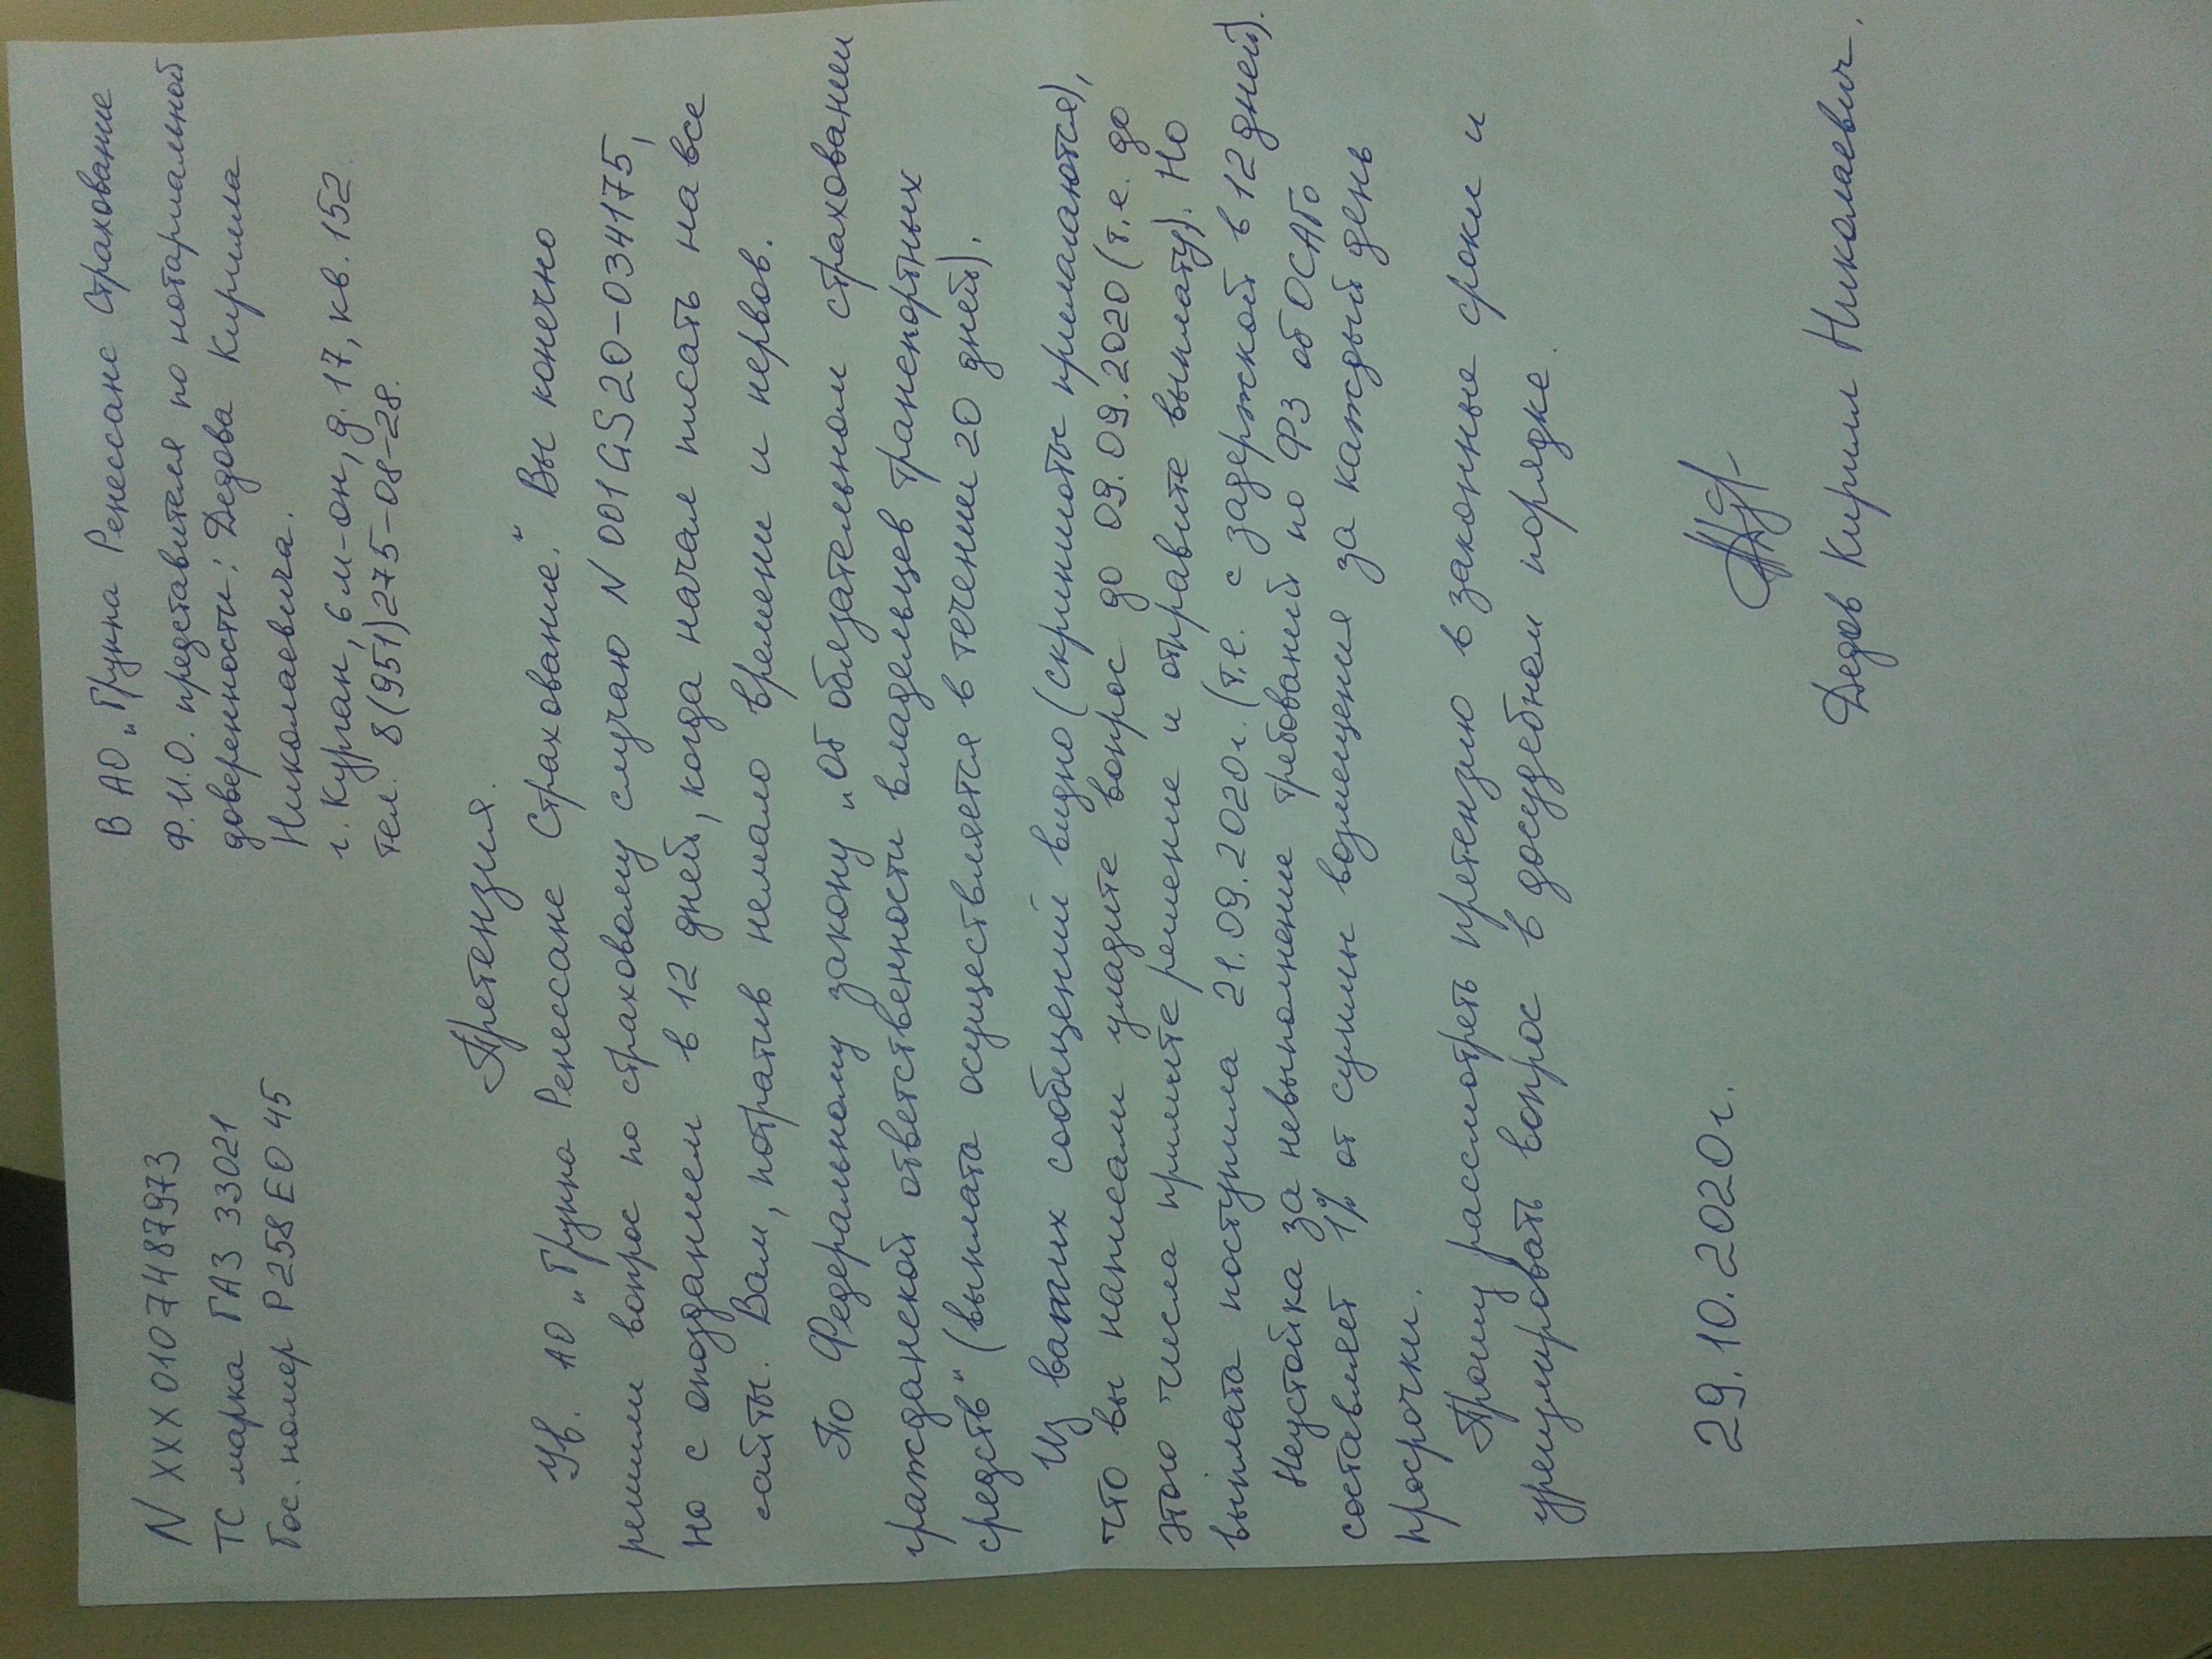 N XXX 0107487973
ТС марка ГАЗ 33021
Гос. номер Р258ЕО 45
В АО „Группа Ренессанс Страхование
Ф.И.О. представителя по нотариальной
доверенности: Дедова Кирилла
Николаевича.
г. Курган, 6 м-он, д. 17, кв. 152.
тел. 8(951)275-08-28.
Претензия.
Ув. АО „Группа Ренессанс Страхование." Вы конечно
решили вопрос по страховому случаю N 001GS20-034175,
но с опозданием в 12 дней, когда начал писать на все
сайты. Вам, потратив немало времени и нервов.
По Федеральному закону „Об обязательном страховании
гражданской ответственности владельцев транспортных
средств" (выплата осуществляется в течении 20 дней).
Из ваших сообщений видно (скриншоты прилагаются),
что вы написали уладите вопрос до 09.09.2020 (т.е. до
этого числа примите решение и отправите выплату). Но
выплата поступила 21.09.2020г. (т.е. с задержкой в 12 дней).
Неустойка за невыполнение требований по ФЗ об ОСАГО
составляет 1% от суммы возмещения за каждый день
просрочки.
Прошу рассмотреть претензию в законные сроки и
урегулировать вопрос в досудебном порядке.
29.10.2020г.
Дедов Кирилл Николаевич.